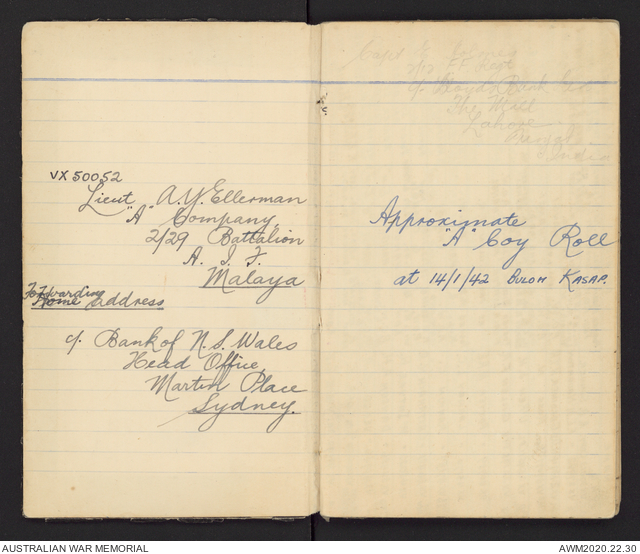 VX50052
Lieut A.Y. Ellerman
"A" Company
2/29 Battalion
A. I. F.
Malaya
Forwarding
Home address
c/. Bank of N. S. Wales
Head Office,
Martin Place
Sydney.
Capt
c/. Lloyds Bank Ltd
The Mall
Lahore
India
Approximate
"A" Coy Roll
at 14/1/42 BULOH KASAP.
AUSTRALIAN WAR MEMORIAL
AWM2020.22.30